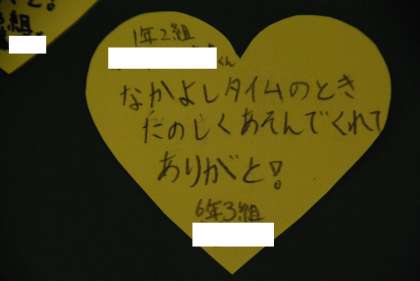 1年2組
くん
なかよしタイムのとき
たのしくあそんでくれて
ありがと!
6年3組
組